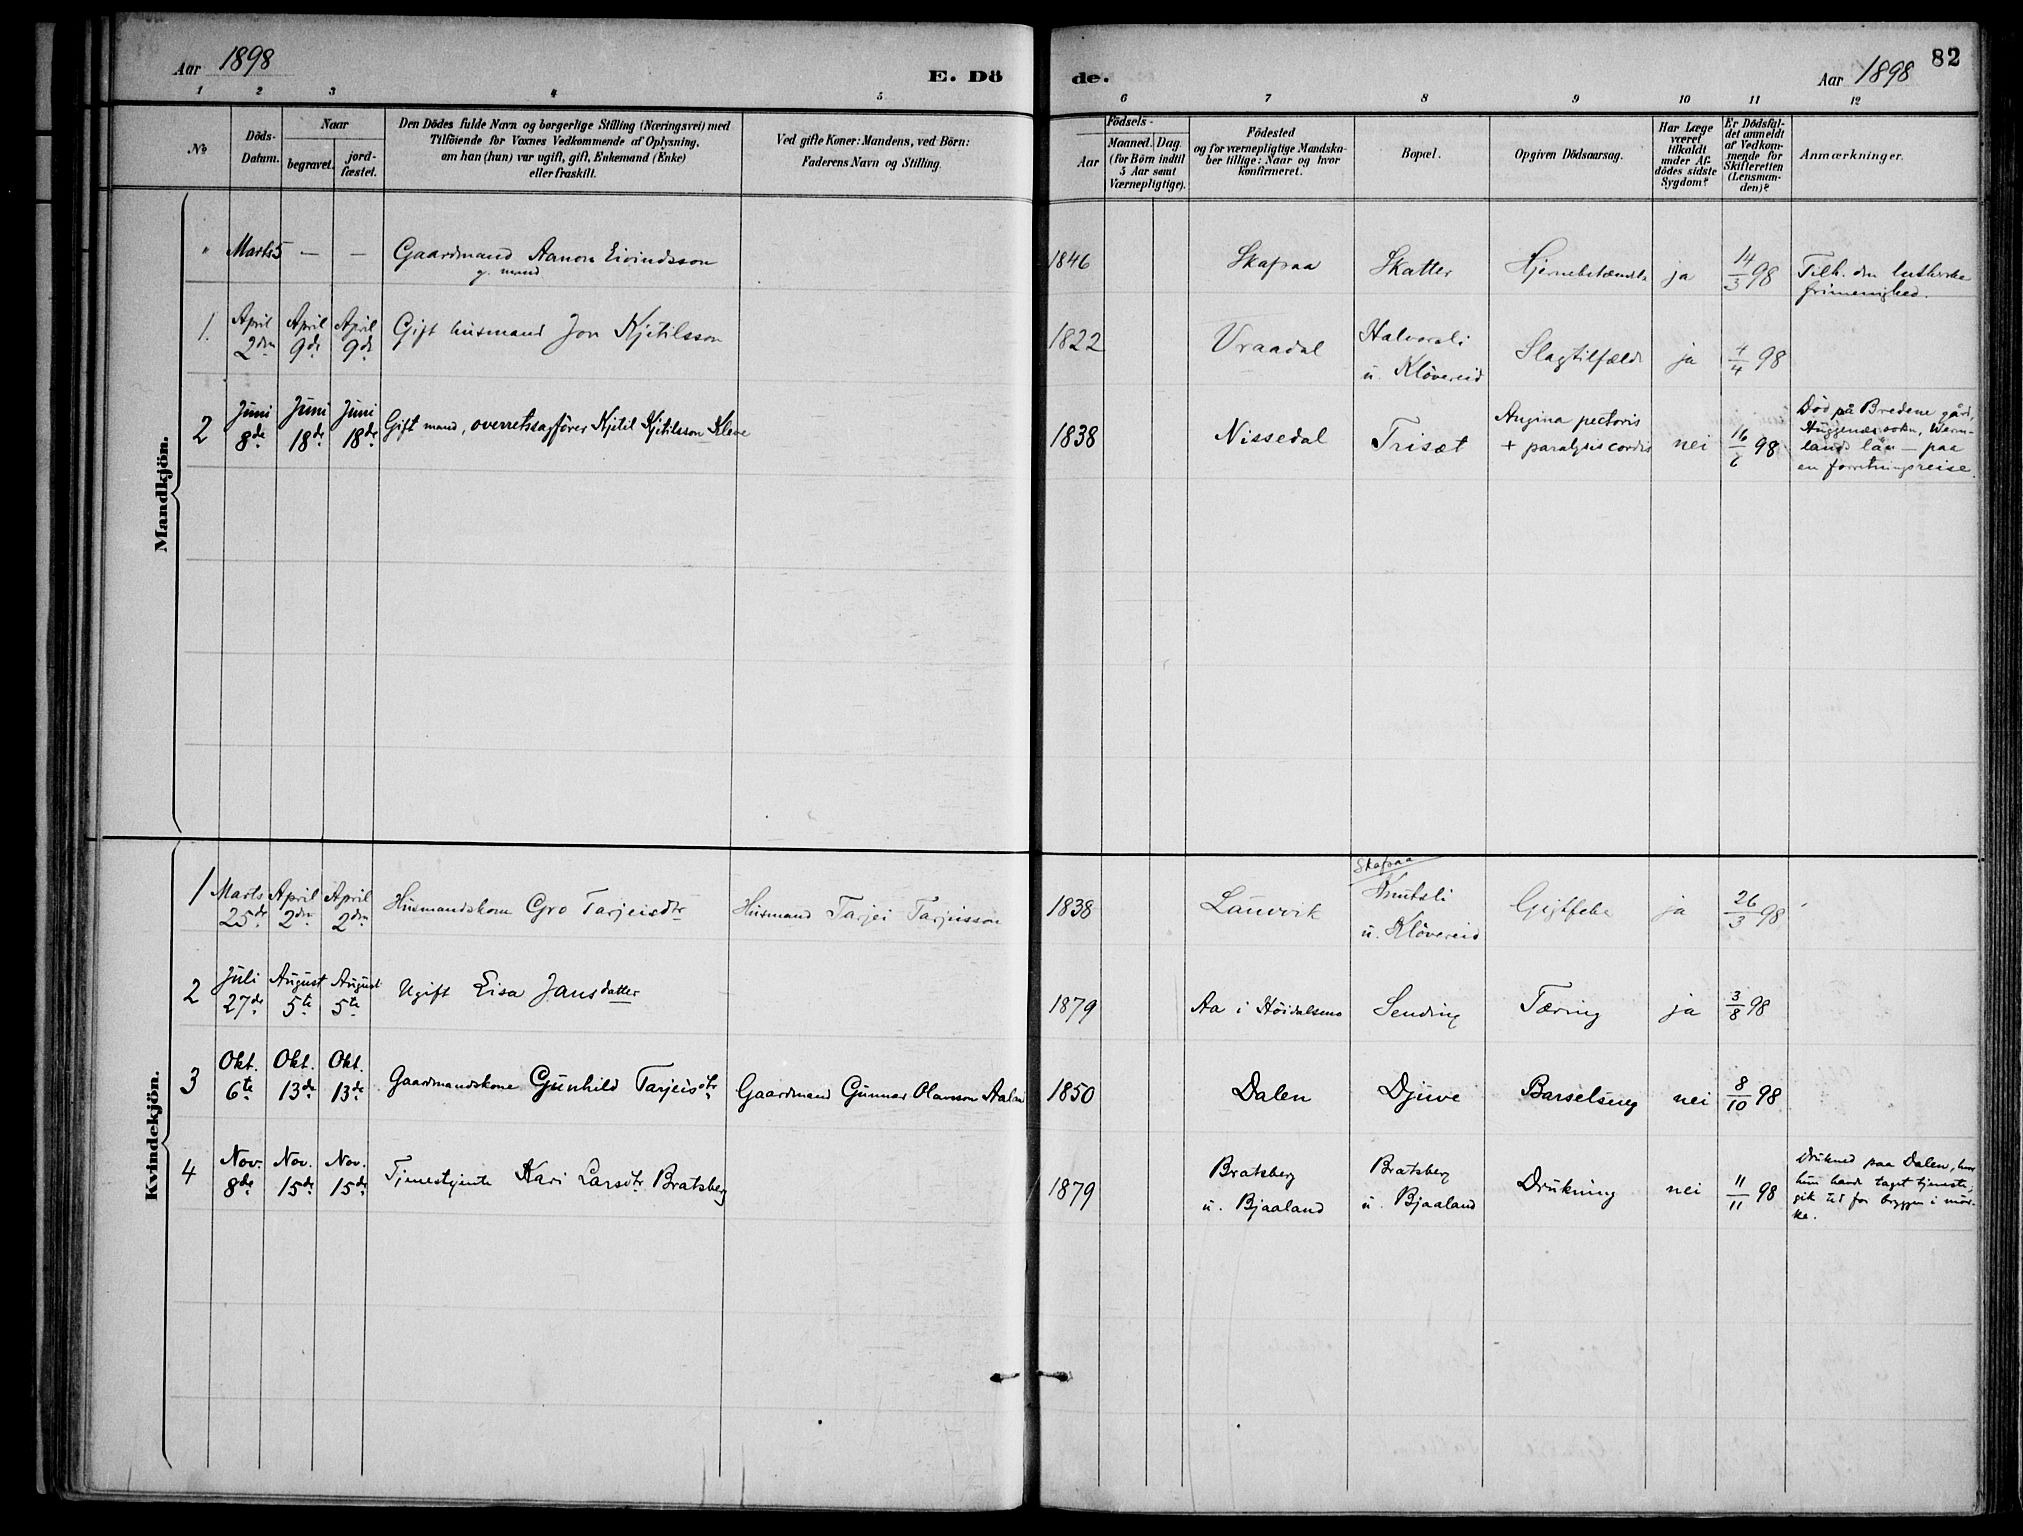 Aar 1898
E. Dö
de.
Aar 1898
82
1 2 3 4 5 6 7 8 9 10 11 12
No
Döds-
Datum.
Naar
begravet.
jord-
fæstet.
Den Dödes fulde Navn og borgerlige Stilling (Næringsvei) med
Tilföiende for Voxnes Vedkommende af Oplysning,
om han (hun) var ugift, gift, Enkemand (Enke)
eller fraskilt.
Ved gifte Koner: Mandens, ved Börn:
Faderens Navn og Stilling.
Födsels-
Aar
Maaned. Dag.
(for Börn indtil
5 Aar samt
Værnepligtige).
Födested
og for værnepligtige Mandska-
ber tillige: Naar og hvor
konfirmeret.
Bopæl.
Opgiven Dödsaarsag.
Har Læge
været
tilkaldt
under Af-
dödes sidste
Sygdom?
Er Dödsfal-
det anmeldt
af Vedkom-
mende for
Skifteretten
(Lensman-
den)?
Anmærkninger.
Mandkjön.
" Marts 5 — — Gaardmand Aanon Eivindsson
g. mand
1846 Skafsaa Skatter ja 14/3 98 Tilh. den lutherske
frimenighed.
1. April 2den April 9de April 9de Gift husmand Jon Kjetilsson
1822 Vraadal Halvorsli
u. Klövereid Slagtilfælde ja 4/4 98
2 Juni 8de Juni 18de Juni 18de Gift mand, overretssagförer Kjetil Kjetilsson Kleve
1838 Nissedal Trisæt Angina pectoris
+ paralysis cordis nei 16/6 98 Död på Bredene gård,
Huggenæs sokn, Werm-
lands län — paa
en forretningsreise.
Kvindekjön.
1 Marts 25de April 2den April 2den Husmandskone Gro Tarjeisdtr Husmand Tarjei Tarjeisson
1838 Lauvvik Skafsaa
Knutsli
u. Klövereid Gigtfeber ja 26/3 98
2 Juli 27de August 5te August 5te Ugift Eisa Jansdatter
1879 Aa i Höidalsmo Sending Tæring ja 3/8 98
3 Okt. 6te Okt. 13de Okt. 13de Gaardmandskone Gunhild Tarjeisdtr Gaardmand Gunnar Olavsson
1850 Dalen Djuve Barselseng nei 8/10 98
4 Nov. 8de Nov. 15de Nov. 15de Tjenestjente Kari Larsdtr Bratsberg
1879 Bratsberg
u. Bjaaland Bratsberg
u. Bjaaland Drukning nei 11/11 98 Drukned paa Dalen, hvor
hun havde taget tjeneste;
gik ud for bryggen i mör-
ke.